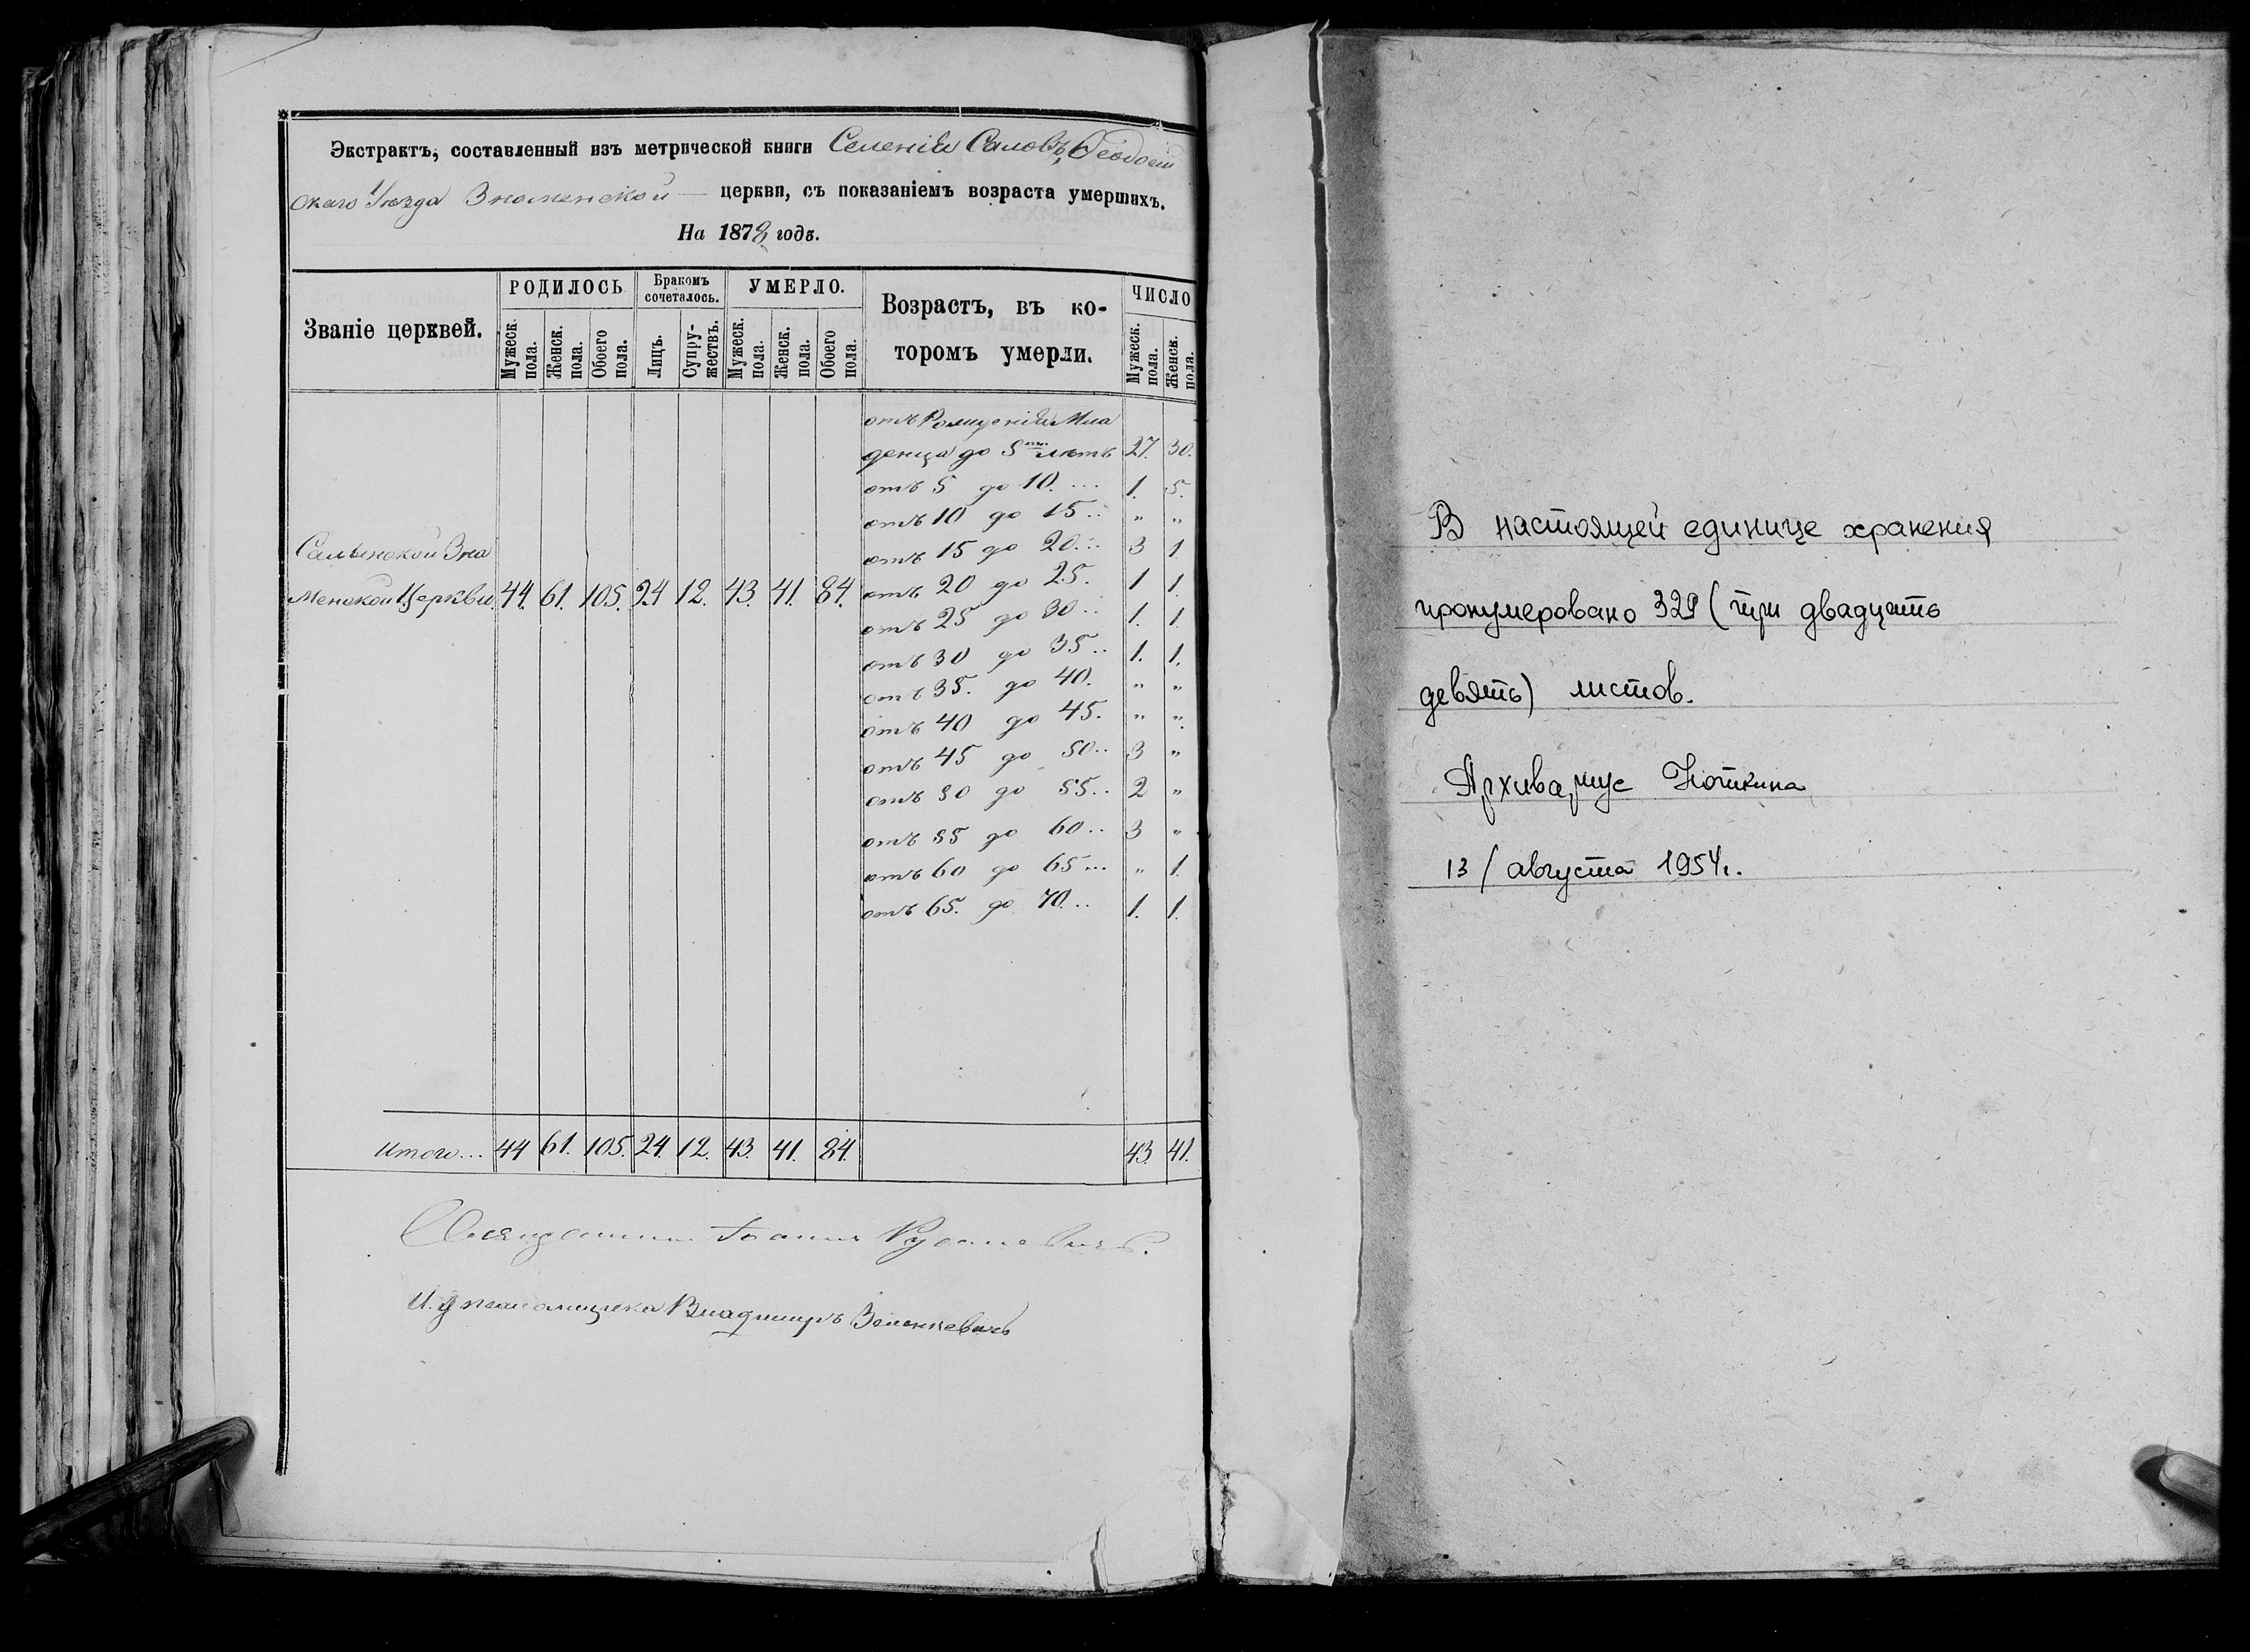 Экстрактъ, составленный изъ метрической книги Селенія Саловъ, Ѳеодосій
скаго Уѣзда Знаменской — церкви, съ показаніемъ возраста умершихъ.
На 1878 годъ.
Званіе церквей.
РОДИЛОСЬ
Бракомъ сочеталось.
УМЕРЛО.
Возрастъ, въ ко-
торомъ умерли.
ЧИСЛО
Мужеск. пола.
Женск. пола.
Обоего пола.
Лицъ.
Супру-жествъ.
Мужеск. пола.
Женск. пола.
Обоего пола.
Мужеск. пола.
Женск. пола.
отъ Рожденія Мла
денца до 5ти лѣтъ 27. 30.
отъ 5 до 10. ... 1. 5.
отъ 10 до 15 .. " "
отъ 15 до 20 ... 3 1
отъ 20 до 25. 1 1.
отъ 25 до 30 .. 1. 1.
отъ 30 до 35 .. 1. 1.
отъ 35. до 40. " "
отъ 40 до 45. " "
отъ 45 до 50 .. 3 "
отъ 50 до 55 .. 2 "
отъ 55 до 60 .. 3 "
отъ 60 до 65 ... " 1.
отъ 65. до 70. .. 1. 1.
Салынской Зна
менской Церкви. 44. 61. 105. 24 12. 43. 41. 84.
Итого... 44 61. 105. 24. 12. 43. 41. 84. 43. 41.
Священникъ Іоаннъ
И. д псаломщика Владимиръ Зенькевичъ
В настоящей единице хранения
пронумеровано 329 (три двадцать
девять) листов.
Архивариус Нюткина
13/августа 1954г.